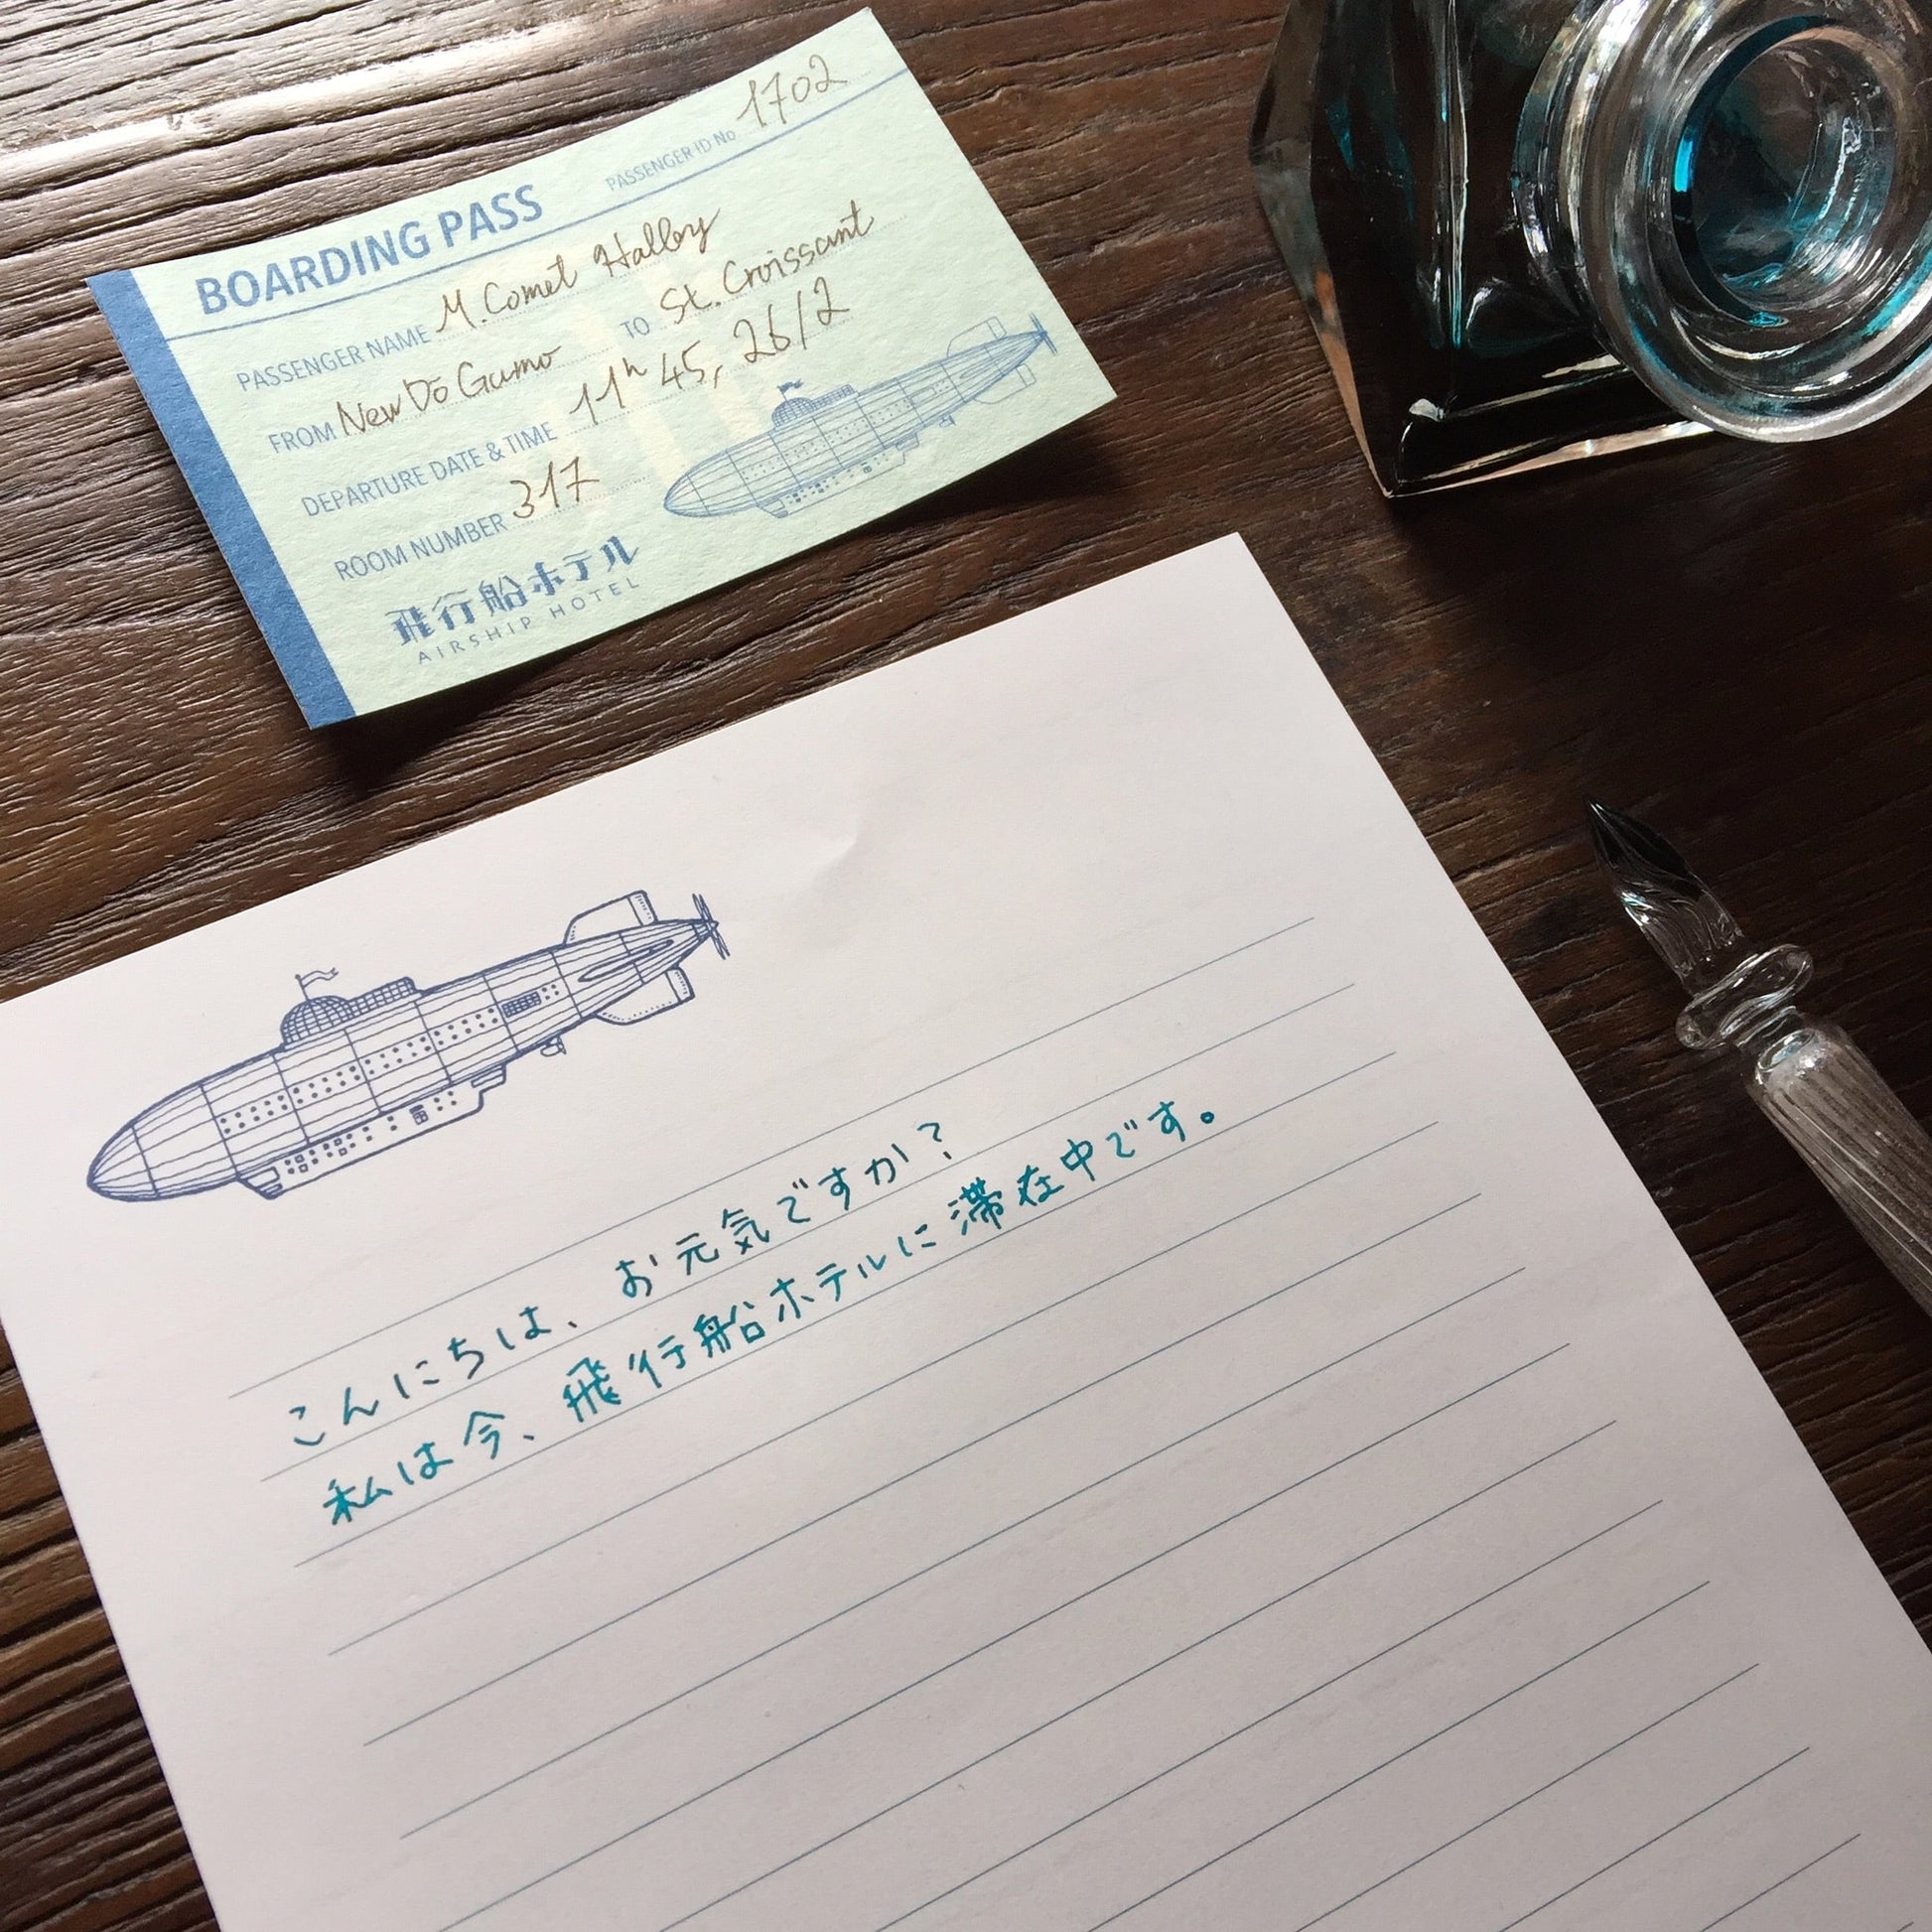 BOARDING PASS PASSENGER ID No 1702
PASSENGER NAME M. Comet Halley
FROM New Dō Gumo TO St. Croissant
DEPARTURE DATE & TIME 11h 45, 26/2
ROOM NUMBER 317
飛行船ホテル
AIRSHIP HOTEL
こんにちは、お元気ですか?
私は今、飛行船ホテルに滞在中です。